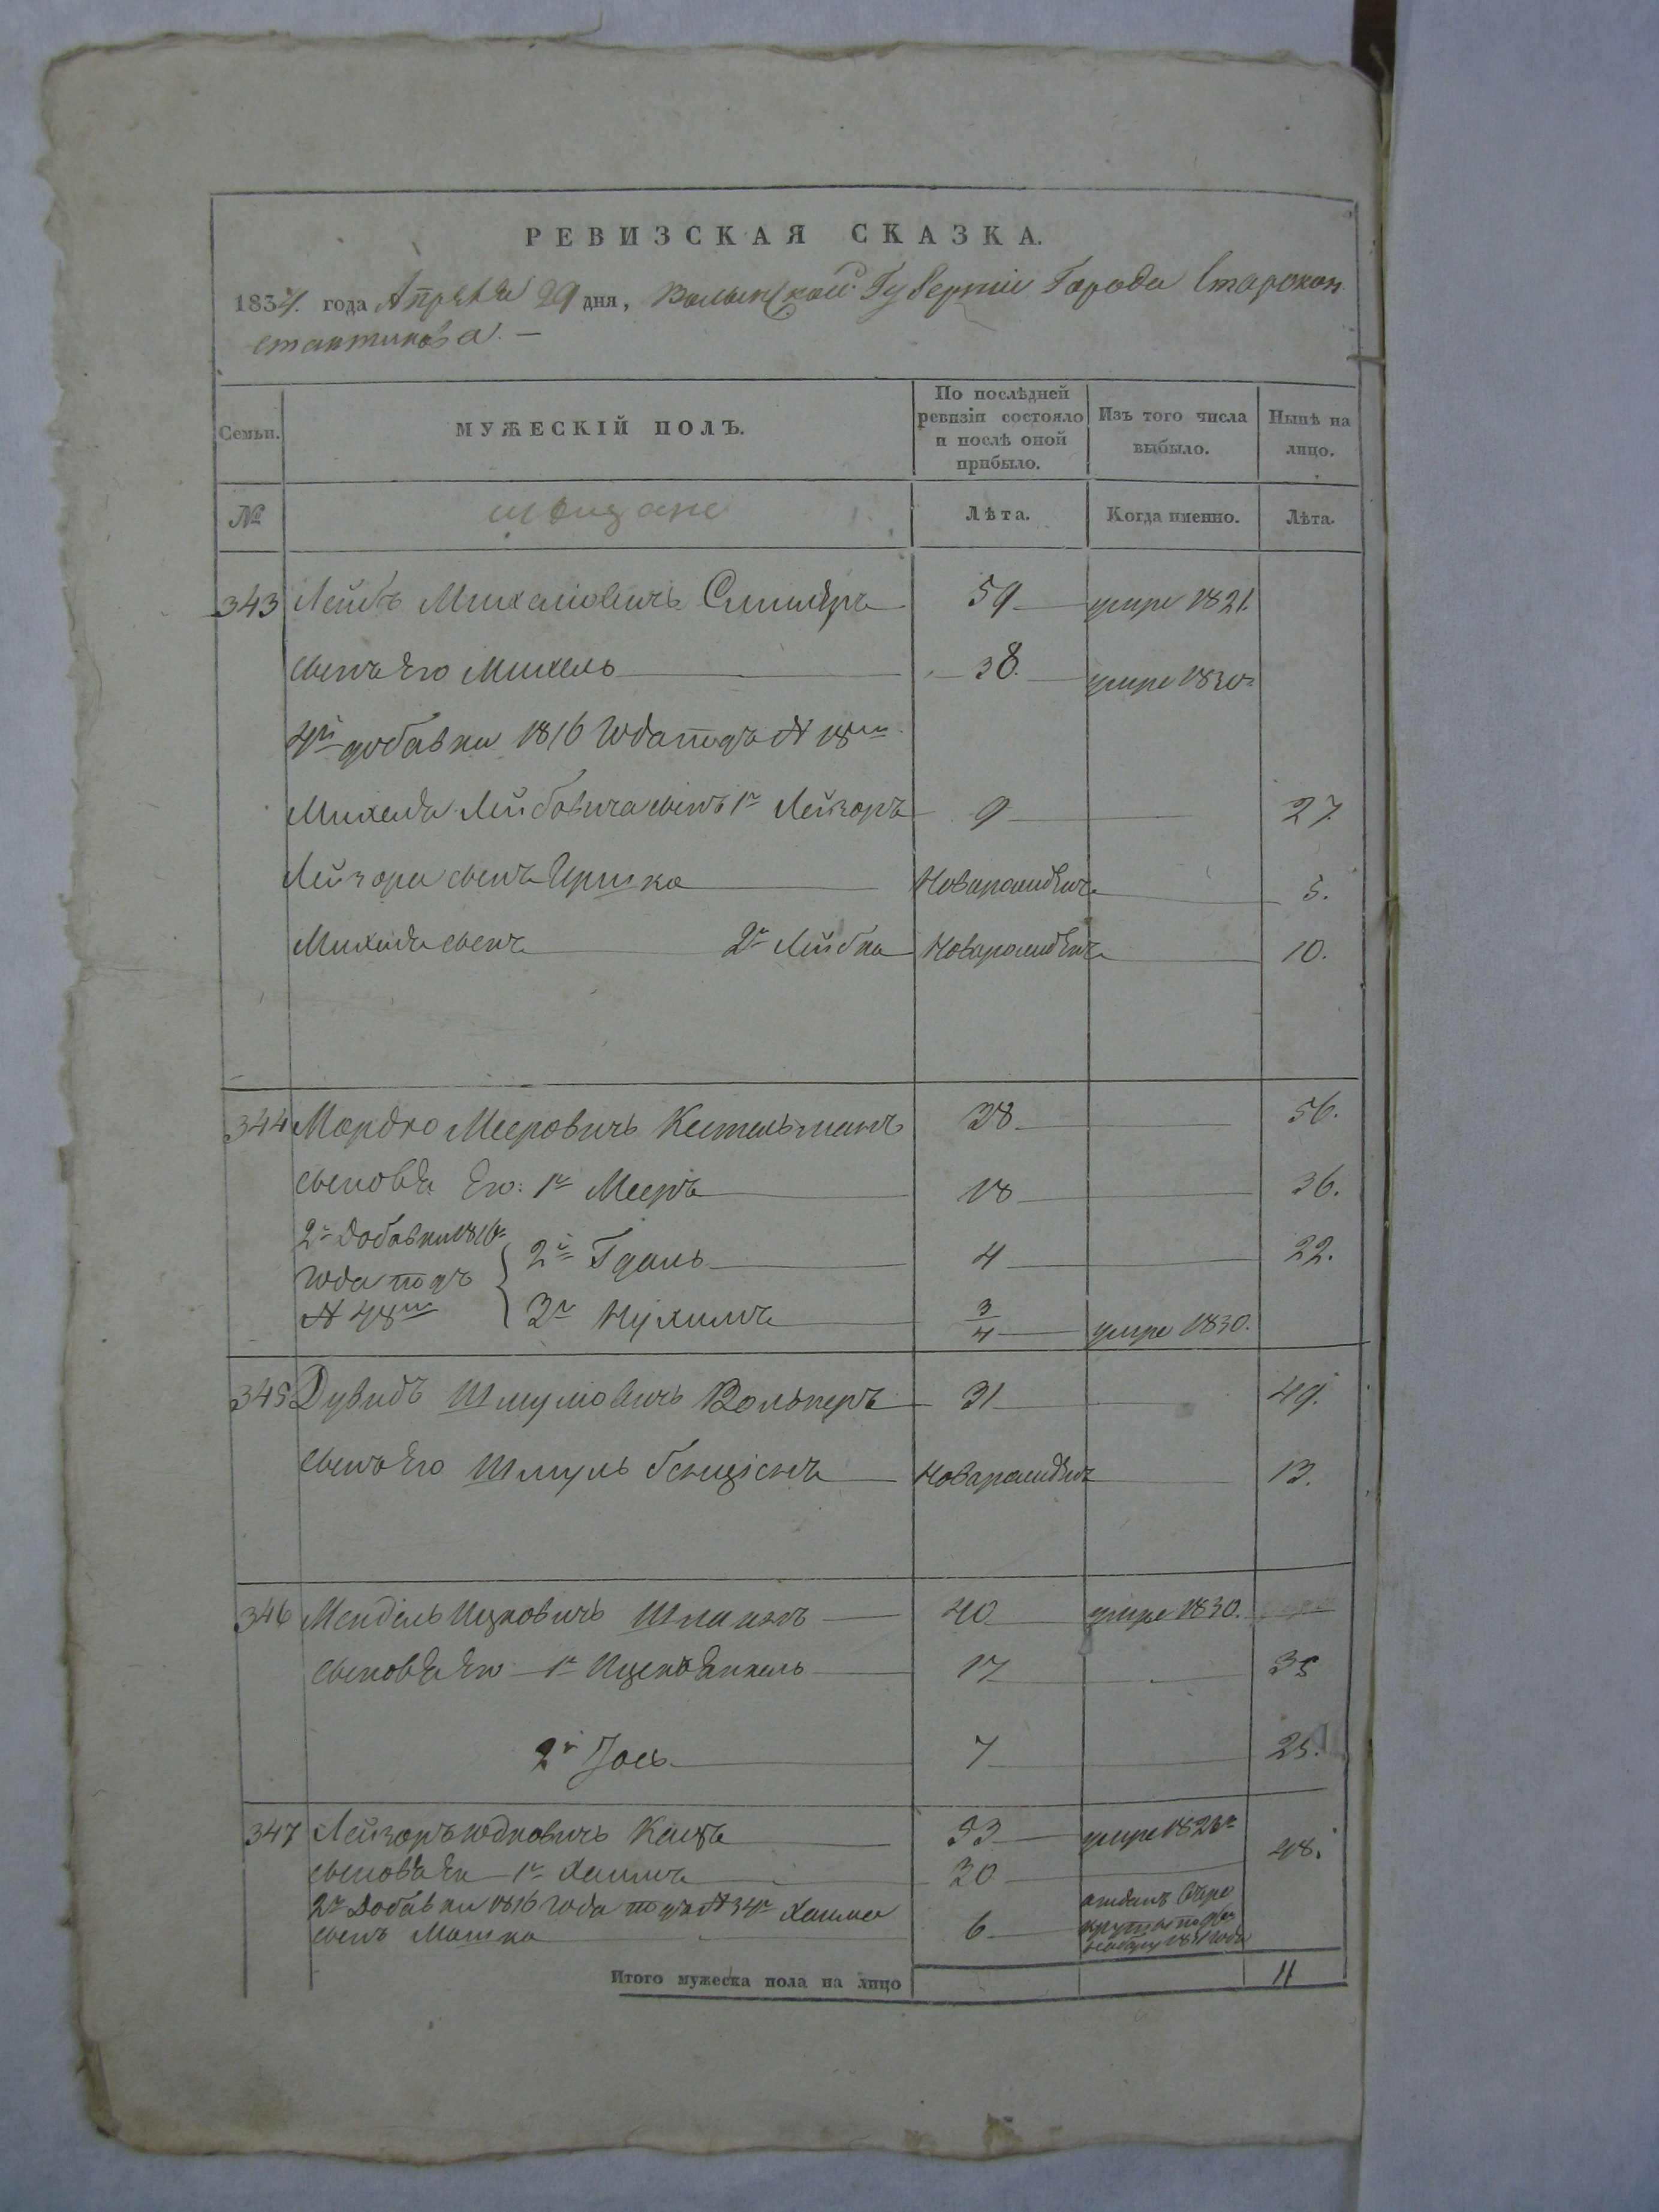 РЕВИЗСКАЯ СКАЗКА.
1834. года Апрѣля 29 дня, Волынской Губерніи Города Старокон
стантинова. —
Семьи. МУЖЕСКІЙ ПОЛЪ. По послѣдней ревизіи состояло и послѣ оной прибыло. Изъ того числа выбыло. Нынѣ на лицо.
№ мѣщане Лѣта. Когда именно. Лѣта.
343 Лейбъ Михелiовичъ 59 умре 1821.
сынъ Его Михель 38. умре 1830
4й добавки 1816 года подъ N 18м
Михеля Лейбовича сынъ 1й Лейзоръ 9 27
Лейзора сынъ Гершко Новорожденъ 5.
Михеля сынъ 2й Лейбка Новорожденъ 10.
344 Мордко Мееровичъ Кестельманъ 38 56.
сыновья Его: 1й Мееръ 18 36.
2й добавки 1816
года подъ
N 48м
2й Гдаль 4 22.
3й Нухимъ 3/4 умре 1830.
345 Дувидъ Шмулiовичъ Вольперъ 31 49.
сынъ Его Шмуль Новорожденъ 13.
346 Мендель Ицковичъ 40 умре 1830.
сыновья Его 1й Ицко Янкель 17 35
2й Iось 7 25.
347 Лейзоръ Юдковичъ Кацъ 53 умре
сыновья Его 1й Хаимъ 30 48.
2й добавки 1816 года подъ N 34м Хаима
сынъ Мошко 6 отданъ въ ре
круты
Итого мужеска пола на лицо 11